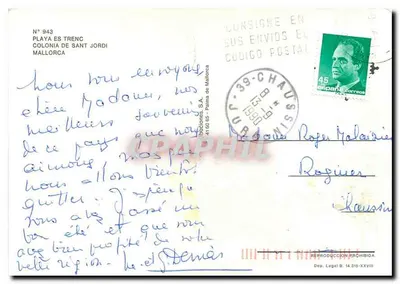 N° 943
PLAYA ES TRENC
COLONIA DE SANT JORDI
MALLORCA
CONSIGNE EN
SUS ENVIOS EL
CODIGO POSTAL
45
ESPAÑA CORREOS
39-CHAUSSIN
JURA
nous vous envoyons
chère Madame, nos
meilleurs souvenirs
de ce pays que nous
aimons
nous allons bientôt
quitter. J'espère
vous avez passé un
bon été et que vous
avez bien profité de votre
belle région.
Demas
Madame Roger
Rognier
Chaussin
CPARAMA
REPRODUCCION PROHIBIDA